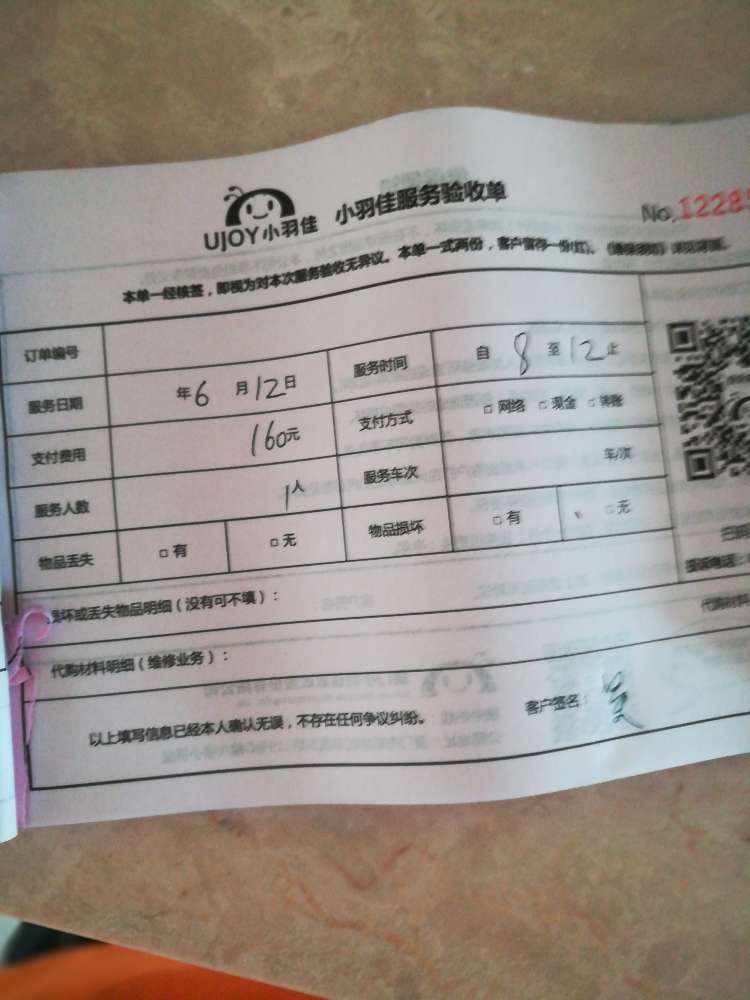 UJOY小羽佳 小羽佳服务验收单
No.1228
本单一经核签，即视为对本次服务验收无异议。本单一式两份，客户留存一份(红)。
订单编号
服务日期 年6月12日 服务时间 自8至12止
支付费用 160元 支付方式 □网络 □现金 □转账
服务人数 1人 服务车次 车/次
物品丢失 □有 □无 物品损坏 □有 □无
损坏或丢失物品明细（没有可不填）：
代购材料明细（维修业务）：
代购材料
以上填写信息已经本人确认无误，不存在任何争议纠纷。 客户签名：